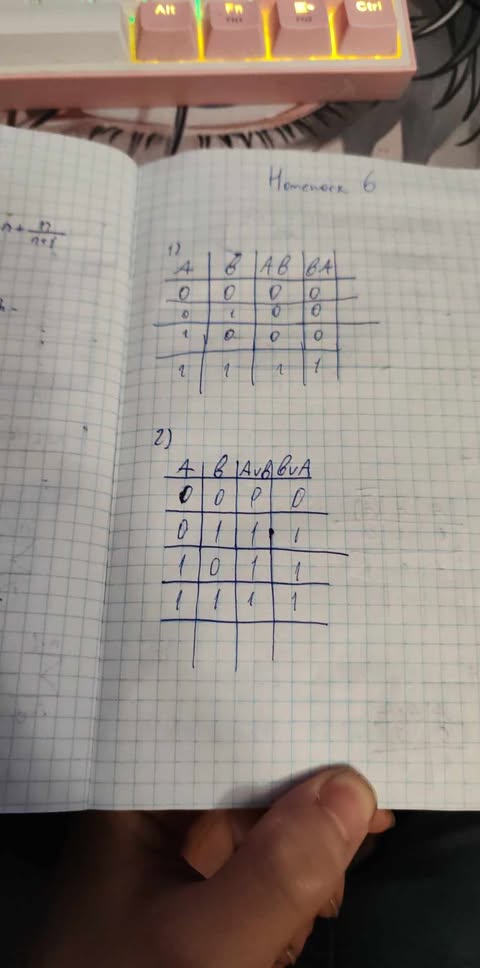 Alt Fn Ctrl
FN1 FN2
Homework 6
1)
A B AB BA
0 0 0 0
0 1 0 0
1 0 0 0
1 1 1 1
2)
A B AvB BvA
0 0 0 0
0 1 1 1
1 0 1 1
1 1 1 1